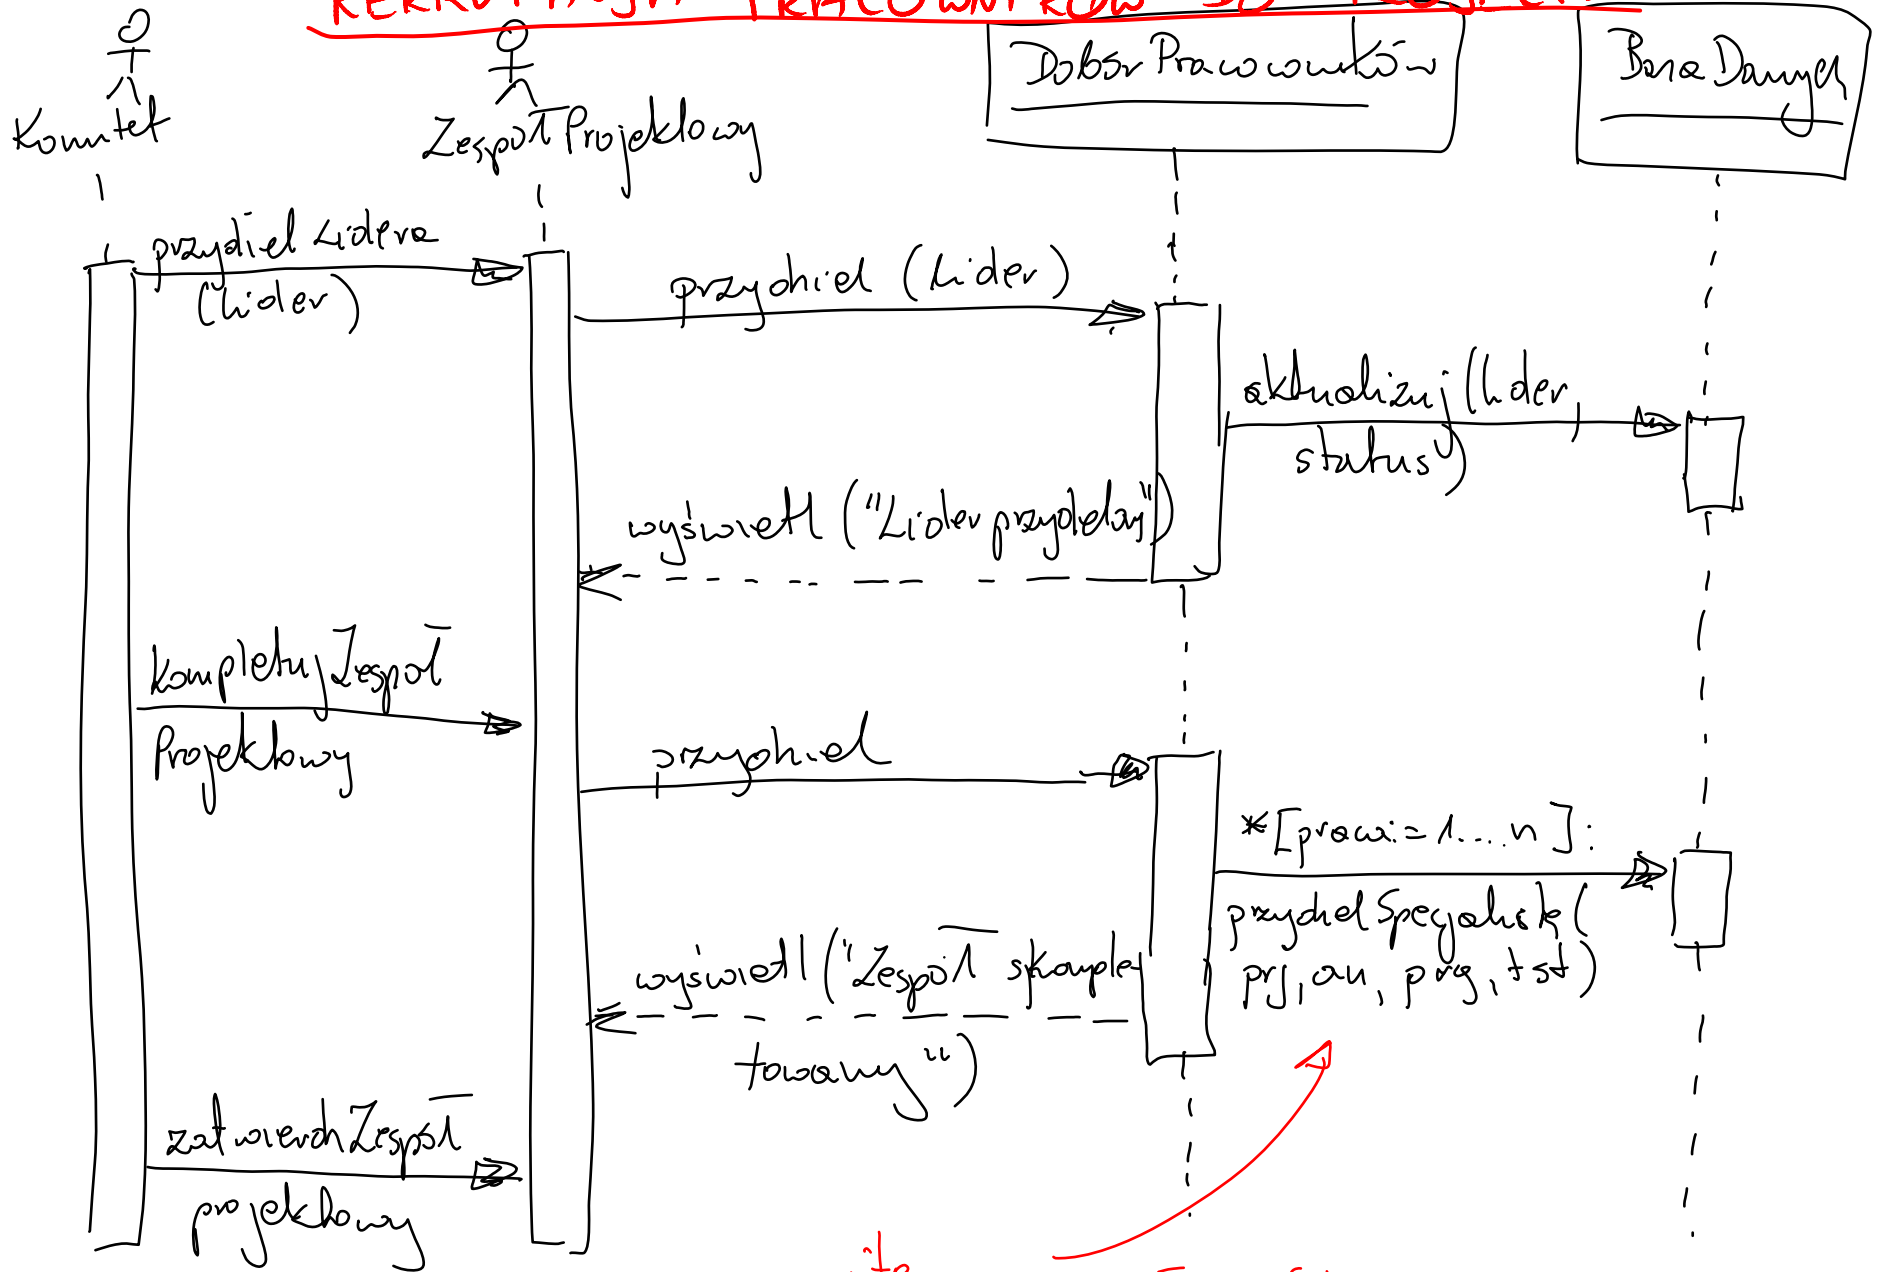 PRACOWNIKÓW DO
Komitet
ZespółProjektowy
Dobór Pracocowników
Baza Danych
przydziel Lidera
(Lider)
przydziel (Lider)
aktualizuj (Lider,
status)
wyświetl ("Lider przydzielony")
kompletuj Zespół
Projektowy
przydziel
*[prac i=1....n]:
przydziel Specjalistę(
prj, an, prg, tst)
wyświetl ("Zespół skomple-
towany")
zatwierdź Zespół
projektowy